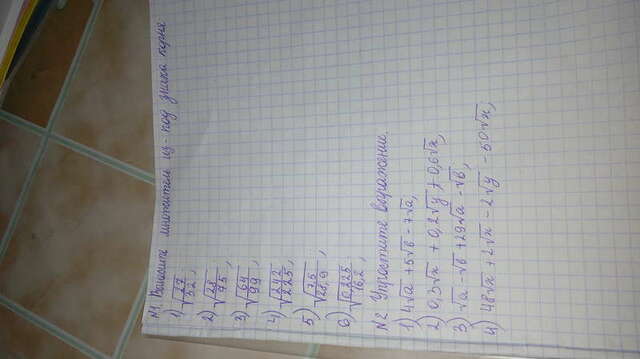 №1. Вынесите множитель из-под знака корня
1) √27/32,
2) √28/75,
3) √64/99,
4) √242/225,
5) √7,5/28,9,
6) √0,225/16,2,
№2 Упростите выражение.
1) 4√a + 5√b - 7√a,
2) 0,3√x + 0,2√y + 0,6√x,
3) √a - √b + 29√a - √b,
4) 48√x + 2√x - 2√y - 50√x,